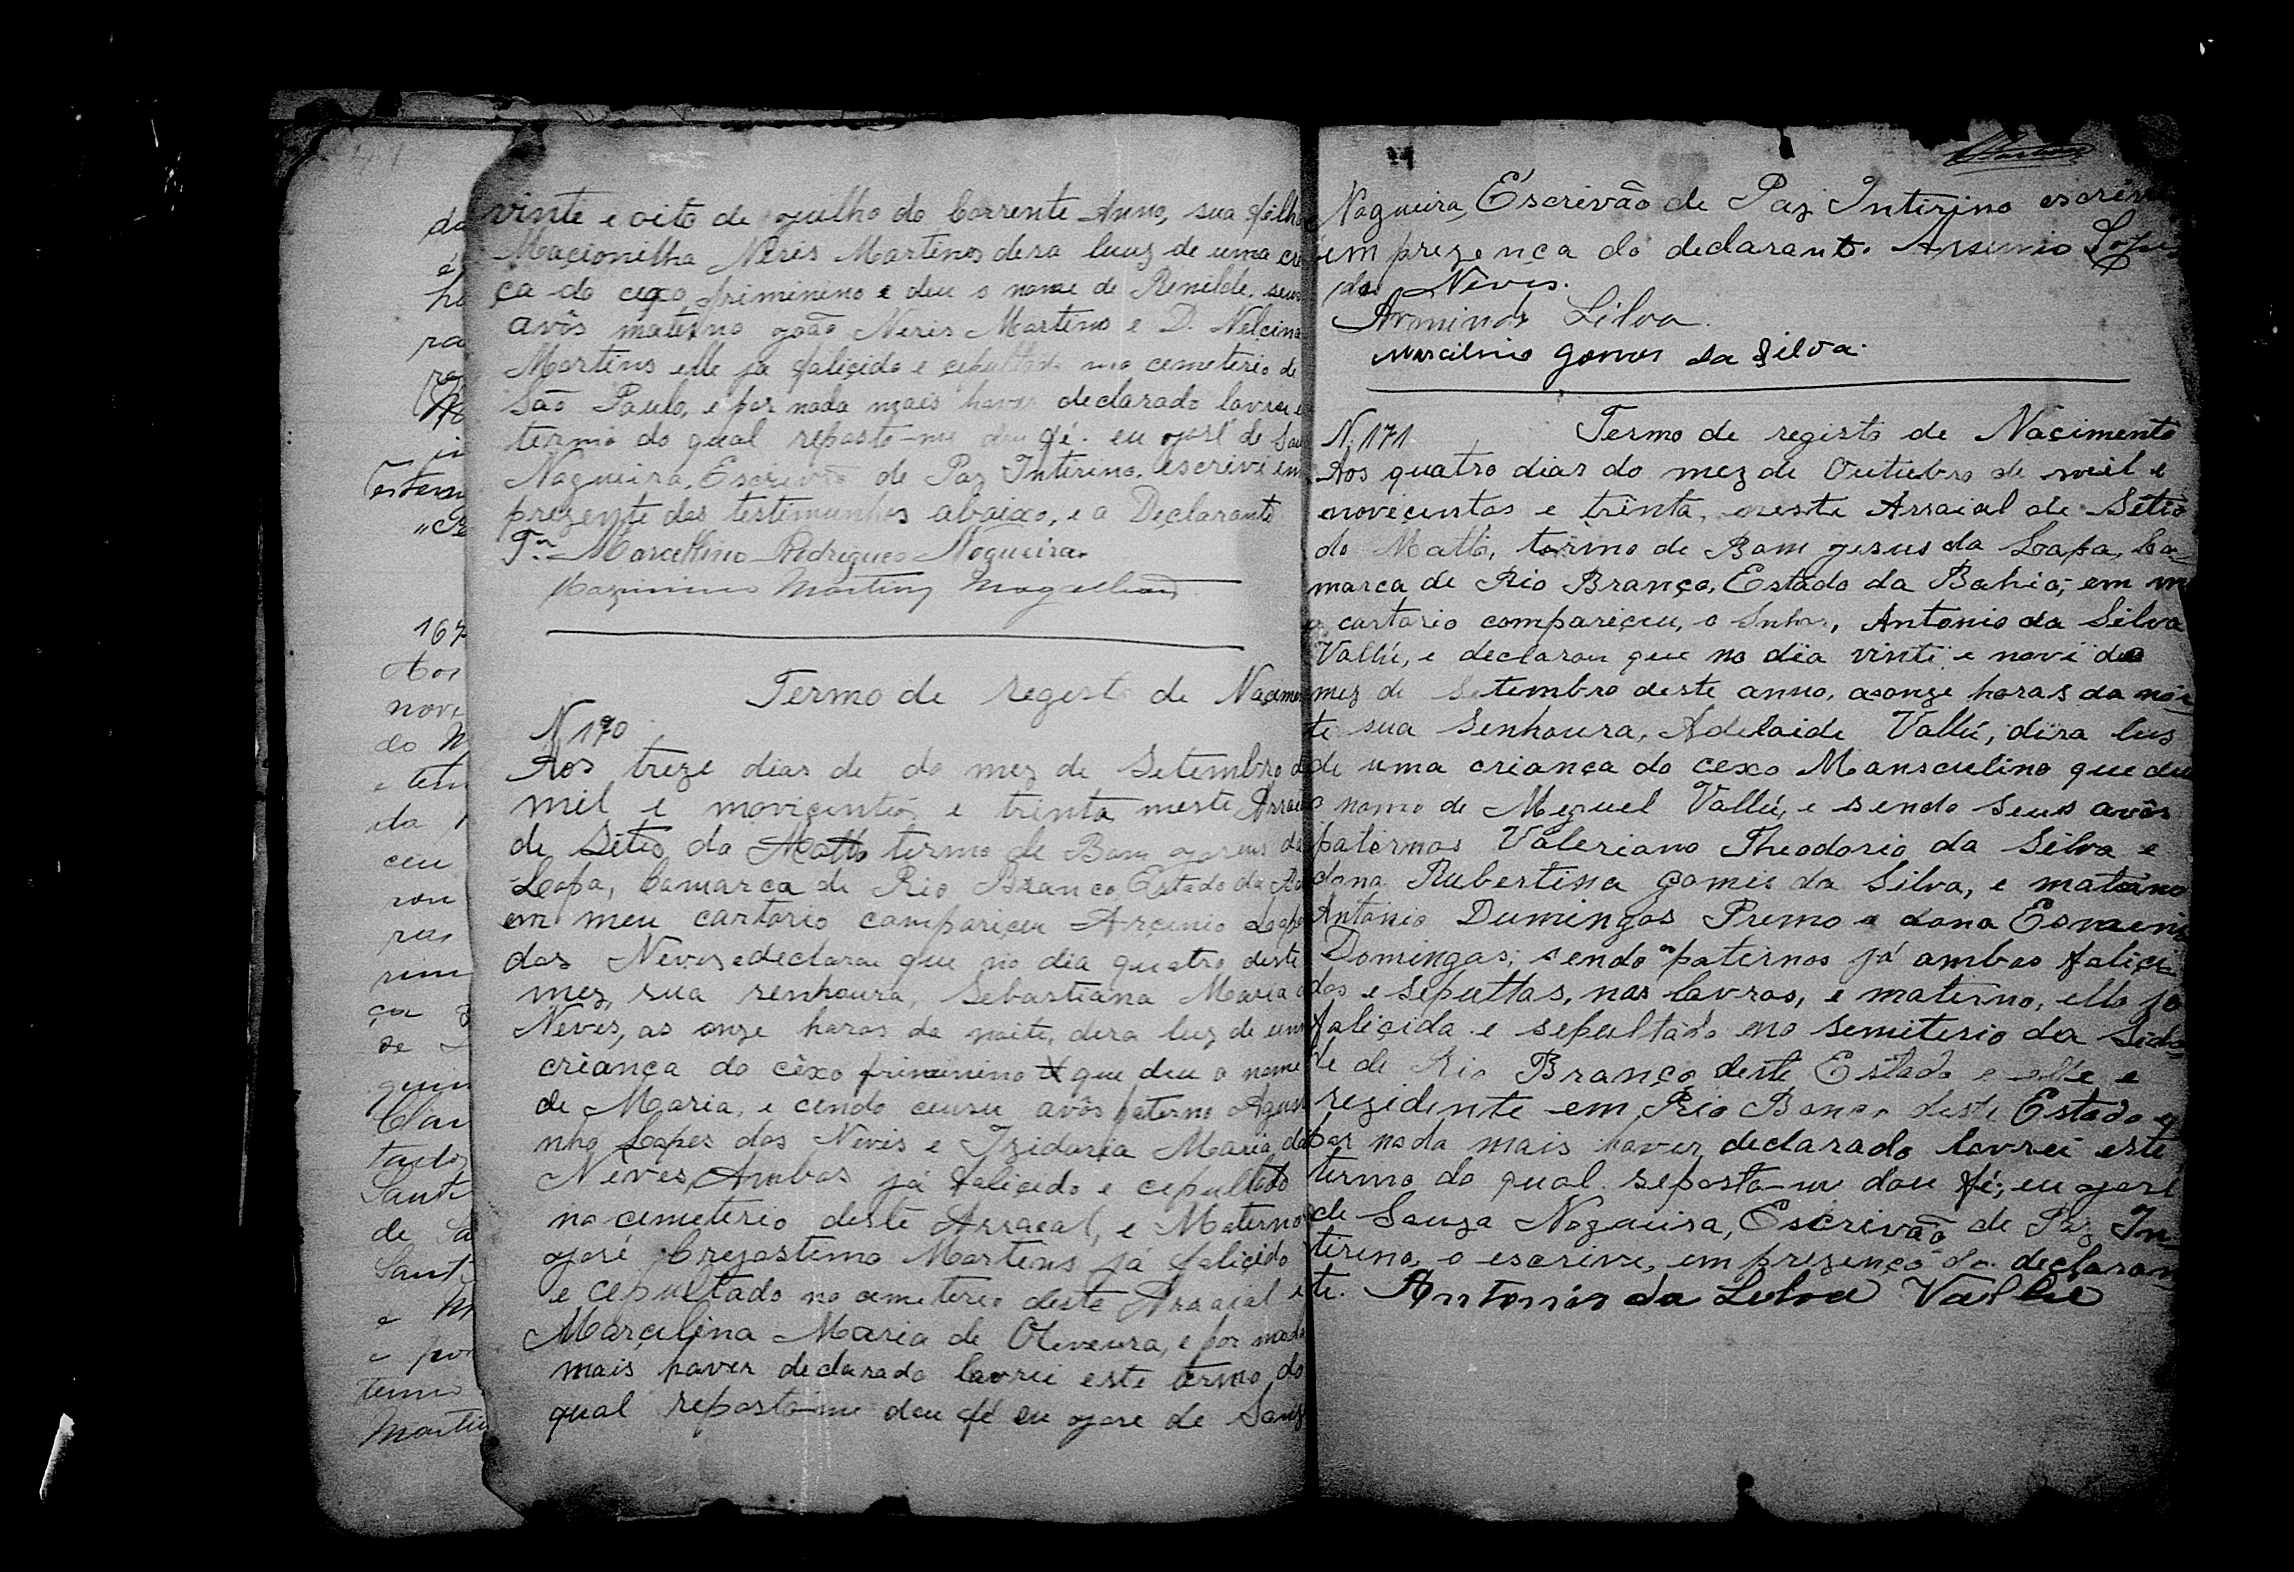 vinte e oito de julho do Corrente Anno, sua filha
Maçionilha Neris Martins dera luuz de uma cri
ça do cexo friminino e deu o nome de Renilde. seus
avôs materno João Neris Martins e D. Nelcina
Martins elle ja faliçido e cepultado no cemeterio de
São Paulo, e por nada mais haver declarado lavrei e
termo do qual reposto-me dou fé. eu José de Sou
Nogueira, Escrivão de Paz Interino. escrivi em
prezente das testimunhas abaixo, e a Declarante
Tª Marcellino Rodrigues Nogueira
Maximino Martins Magalhães
Termo de registo de Nacimen
N 170
Aos treze dias de do mez de Setembro d
mil e noviçentos e trinta neste Arraia
de Sitio do Matto termo de Bom Jesus da
Lapa, Comarca de Rio Branco Estado da Ba
em meu cartorio compariçeu Arçenio Lope
das Neves e declarou que no dia quatro deste
mez, sua senhoura, Sebastiana Maria d
Neves, as onze horas da noite, dera luz de uma
criança do cêxo friminino que deu o nome
de Maria, e cendo ceusu avôs paterno Agusti
nho Lopes das Nevis e Izidoria Maria das
Nêves, Ambos já faliçido e cepultado
no cemeterio deste Arraeal, e Materno
José Crejostimo Martins já faliçido
e cepultado no cemeterio deste Arraial e
Marçilina Maria de Oliveura, e por nada
mais haver declarado lavrei este termo do
qual reposto-me dou fé eu Jose de Souz
Nogueira, Éscrivão de Paz Intirino escrivi
em prezença do declarante Arsenio Lopes
das Neves.
Arminda Silva.
Marcilino gomes da Silva.
N. 171 Termo de registo de Nacimento
Aos quatro dias do mez de Outubro de mil e
noveçentos e trinta, neste Arraial de Sitio
do Matto, termo de Bom Jesus da Lapa, Co-
marca de Rio Branço, Estado da Bahia, em m
u cartorio compariçeu, o Senhor, Antonio da Silva
Vallú, e declarou que no dia vinte e nove do
mez de Setembro deste anno, as onze horas da noi-
te sua Senhoura, Adelaide Vallú, dera lus
de uma criança do cexo Mansculino que deu
o nome de Meguel Vallú, e sendo seus avôs
paternos Valeriano Theodorio da Silva e
dona Rubertina Gomes da Silva, e materno
Antonio Dumingos Premo e dona Esmeni
Domingas; sendo os paternos já ambos faliçi-
dos e sepultas, nas lavras, e materno, ello ja
faliçida e sepultado no semiterio da Sida-
de de Rio Branço deste Estado e elle e
rezidente em Rio Branco deste Estado e
por nada mais haver declarado lavrei este
termo do qual reposto-me dou fé; eu José
de Souza Nogueira, Escrivão de Paz In-
tirino, o escrive, em prezença do declaran
te. Antonio da Silva Vallu
167